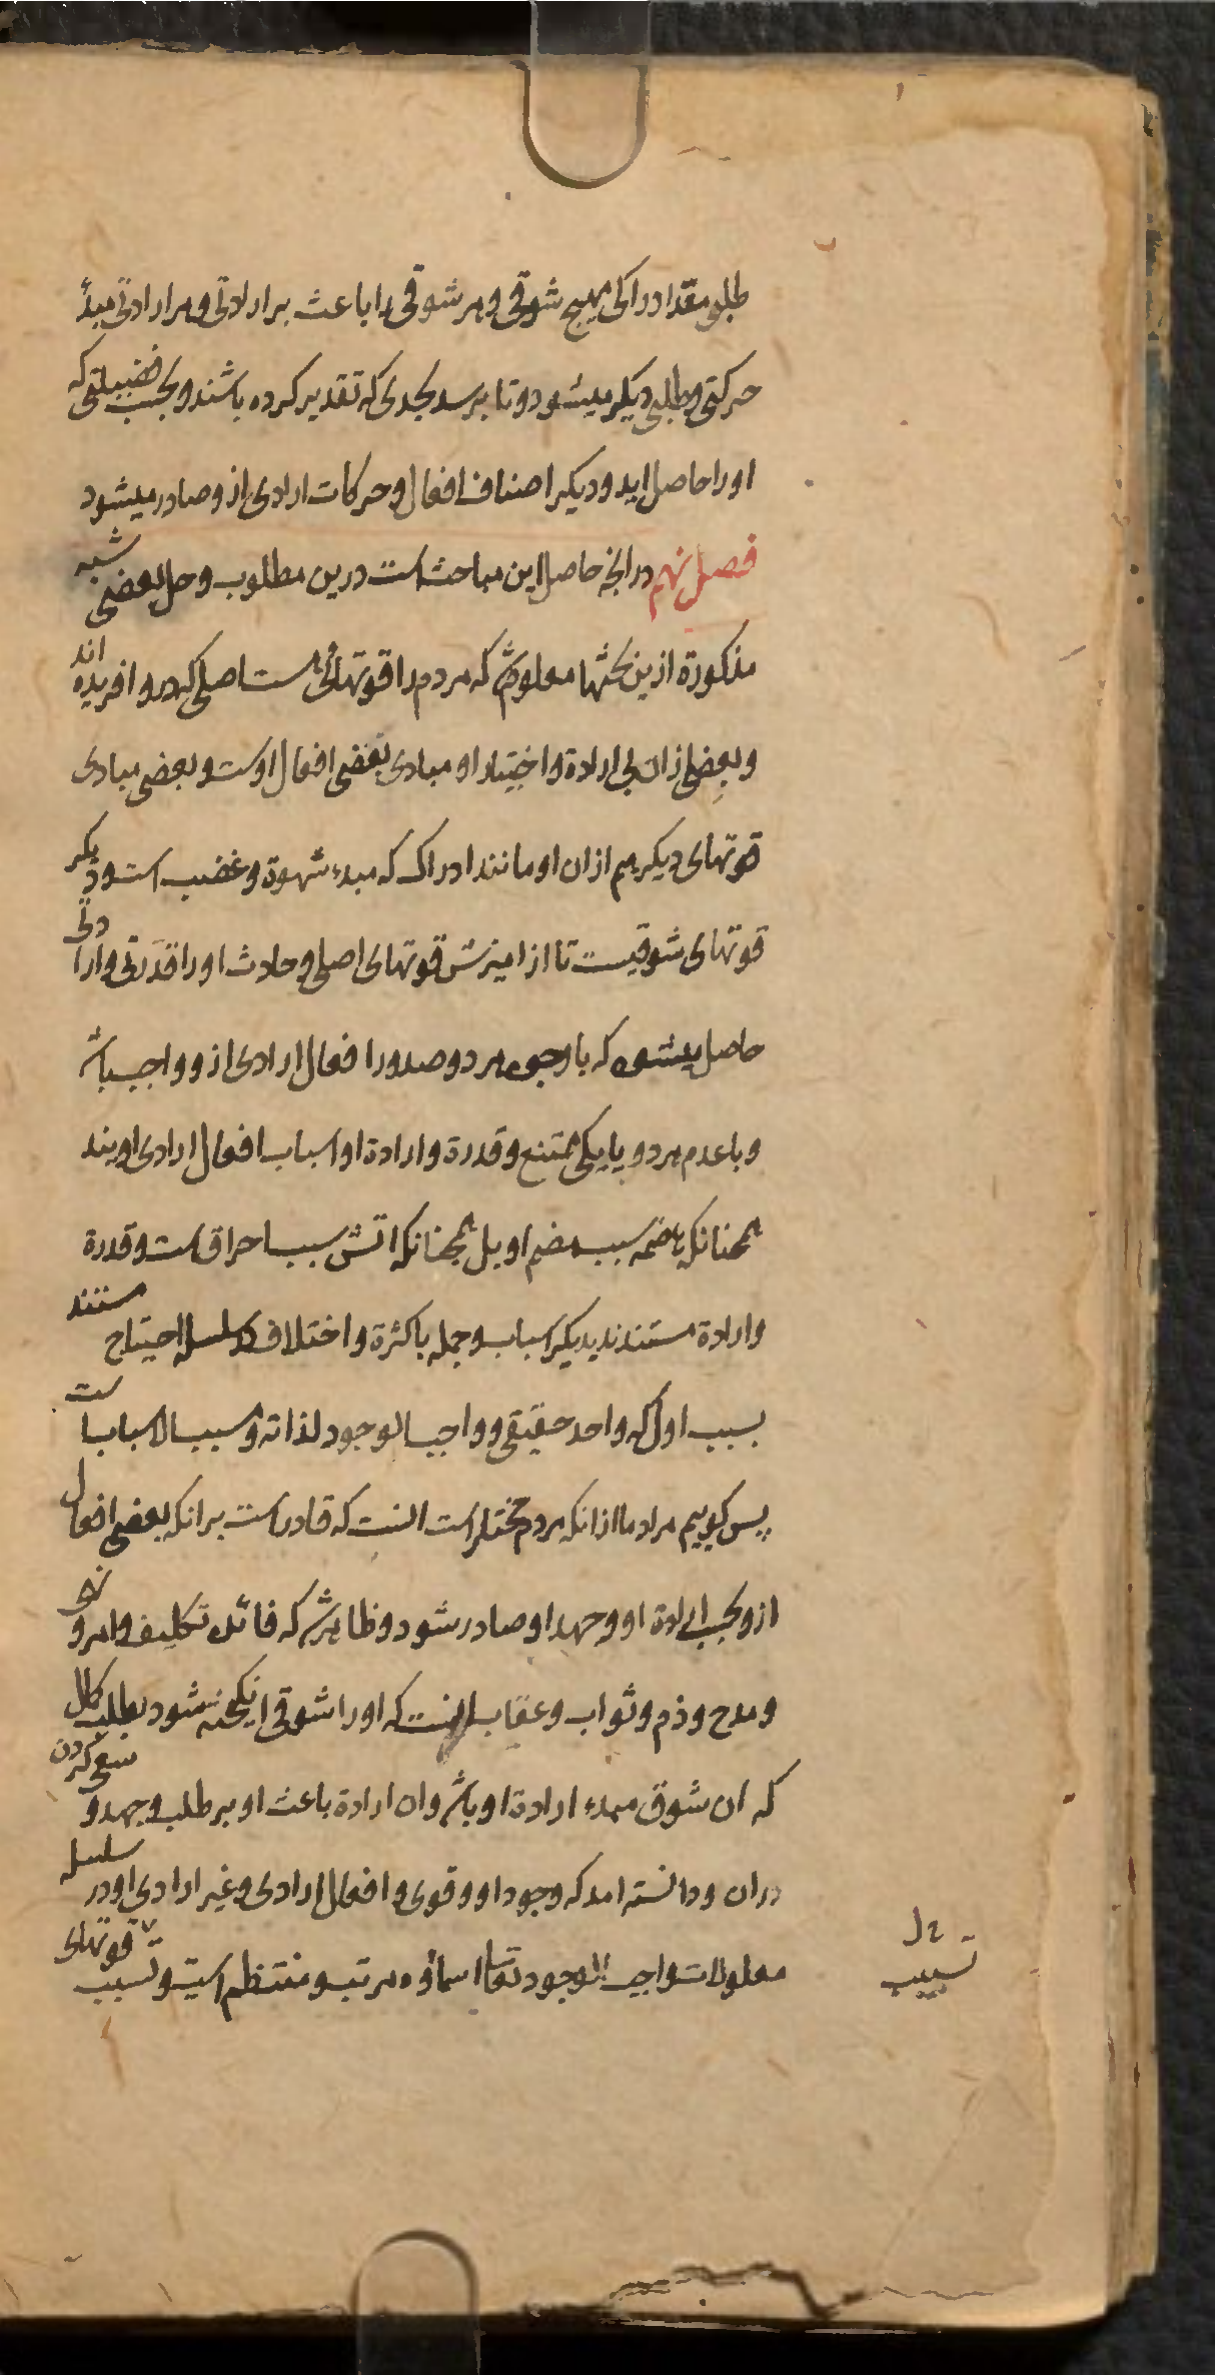 طلبی معدّ ادراکی مهیج شوقی و هر شوقی را باعث بر ارادتی و هر ارادتی مبدأ
حرکتی و طلبی دیگر میشود و تا برسد بحدی که تقدیر کرده باشند و بحسب فضیلتی که
او را حاصل اید و دیکر اصناف افعال و حرکات ارادی ازو صادر میشود
فصل نهم در انچه حاصل این مباحث است درین مطلوب و حل بعضی شبه
مذکورة ازین بحثها معلوم شد که مردم را قوتهائی هست اصلی که درو افریده اند
و بعضی ازان بی ارادة و اختیار او مبادی بعضی افعال اوست و بعضی مبادی
قوتهای دیکر هم ازان او مانند ادراک که مبدء شهوة و غضب است و دیکر
قوتهای شوقیست تا از امیزش قوتهای اصلی و حادث او را قدرتی و ارادتی
حاصل میشود که با وجود هر دو صدور افعال ارادی ازو واجب باشد
و با عدم هر دو یا یکی ممتنع و قدرة و ارادة او اسباب افعال ارادی اویند
همچنانکه هاضمه سبب هضم او بل همچنانکه اتش سبب احراق است و قدرة
و ارادة مستندند بدیکر اسباب و جمله با کثرة و اختلاف در سلسله احتیاج مستند
بسبب اول که واحد حقیقی و واجب الوجود لذاته و مسبب الاسباب است
پس کوییم مراد ما ازانکه مردم مختار است انست که قادر است برانکه بعضی افعال
ازو بحسب ارادة او و جهد او صادر شود و ظاهر شد که فائدهٔ تکلیف و امر و نهی
و مدح و ذم و ثواب و عقاب انست که او را شوقی انکیخته شود بطلب کمال
که ان شوق مبدء ارادة او باشد و ان ارادة باعث او بر طلب و جهد و سعی کردن
دران و دانسته امد که وجود او و قوی و افعال ارادی و غیر ارادی او در سلسله
معلولات واجب الوجود تعالی اسماؤه مرتب و منتظم است و تسبیب قوتهای
تسبیب